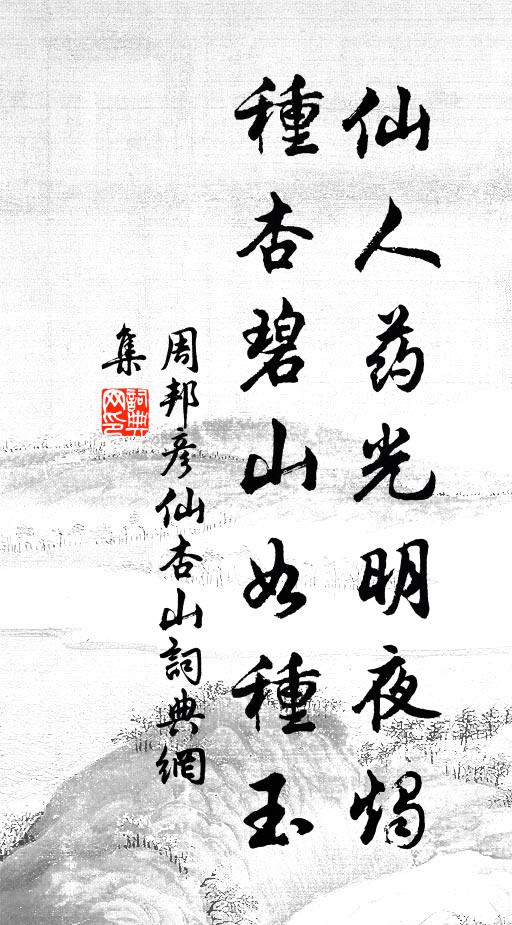 仙人药光明夜燭
種杏碧山如種玉
周邦彦仙杏山詞典網
集
詞典網印